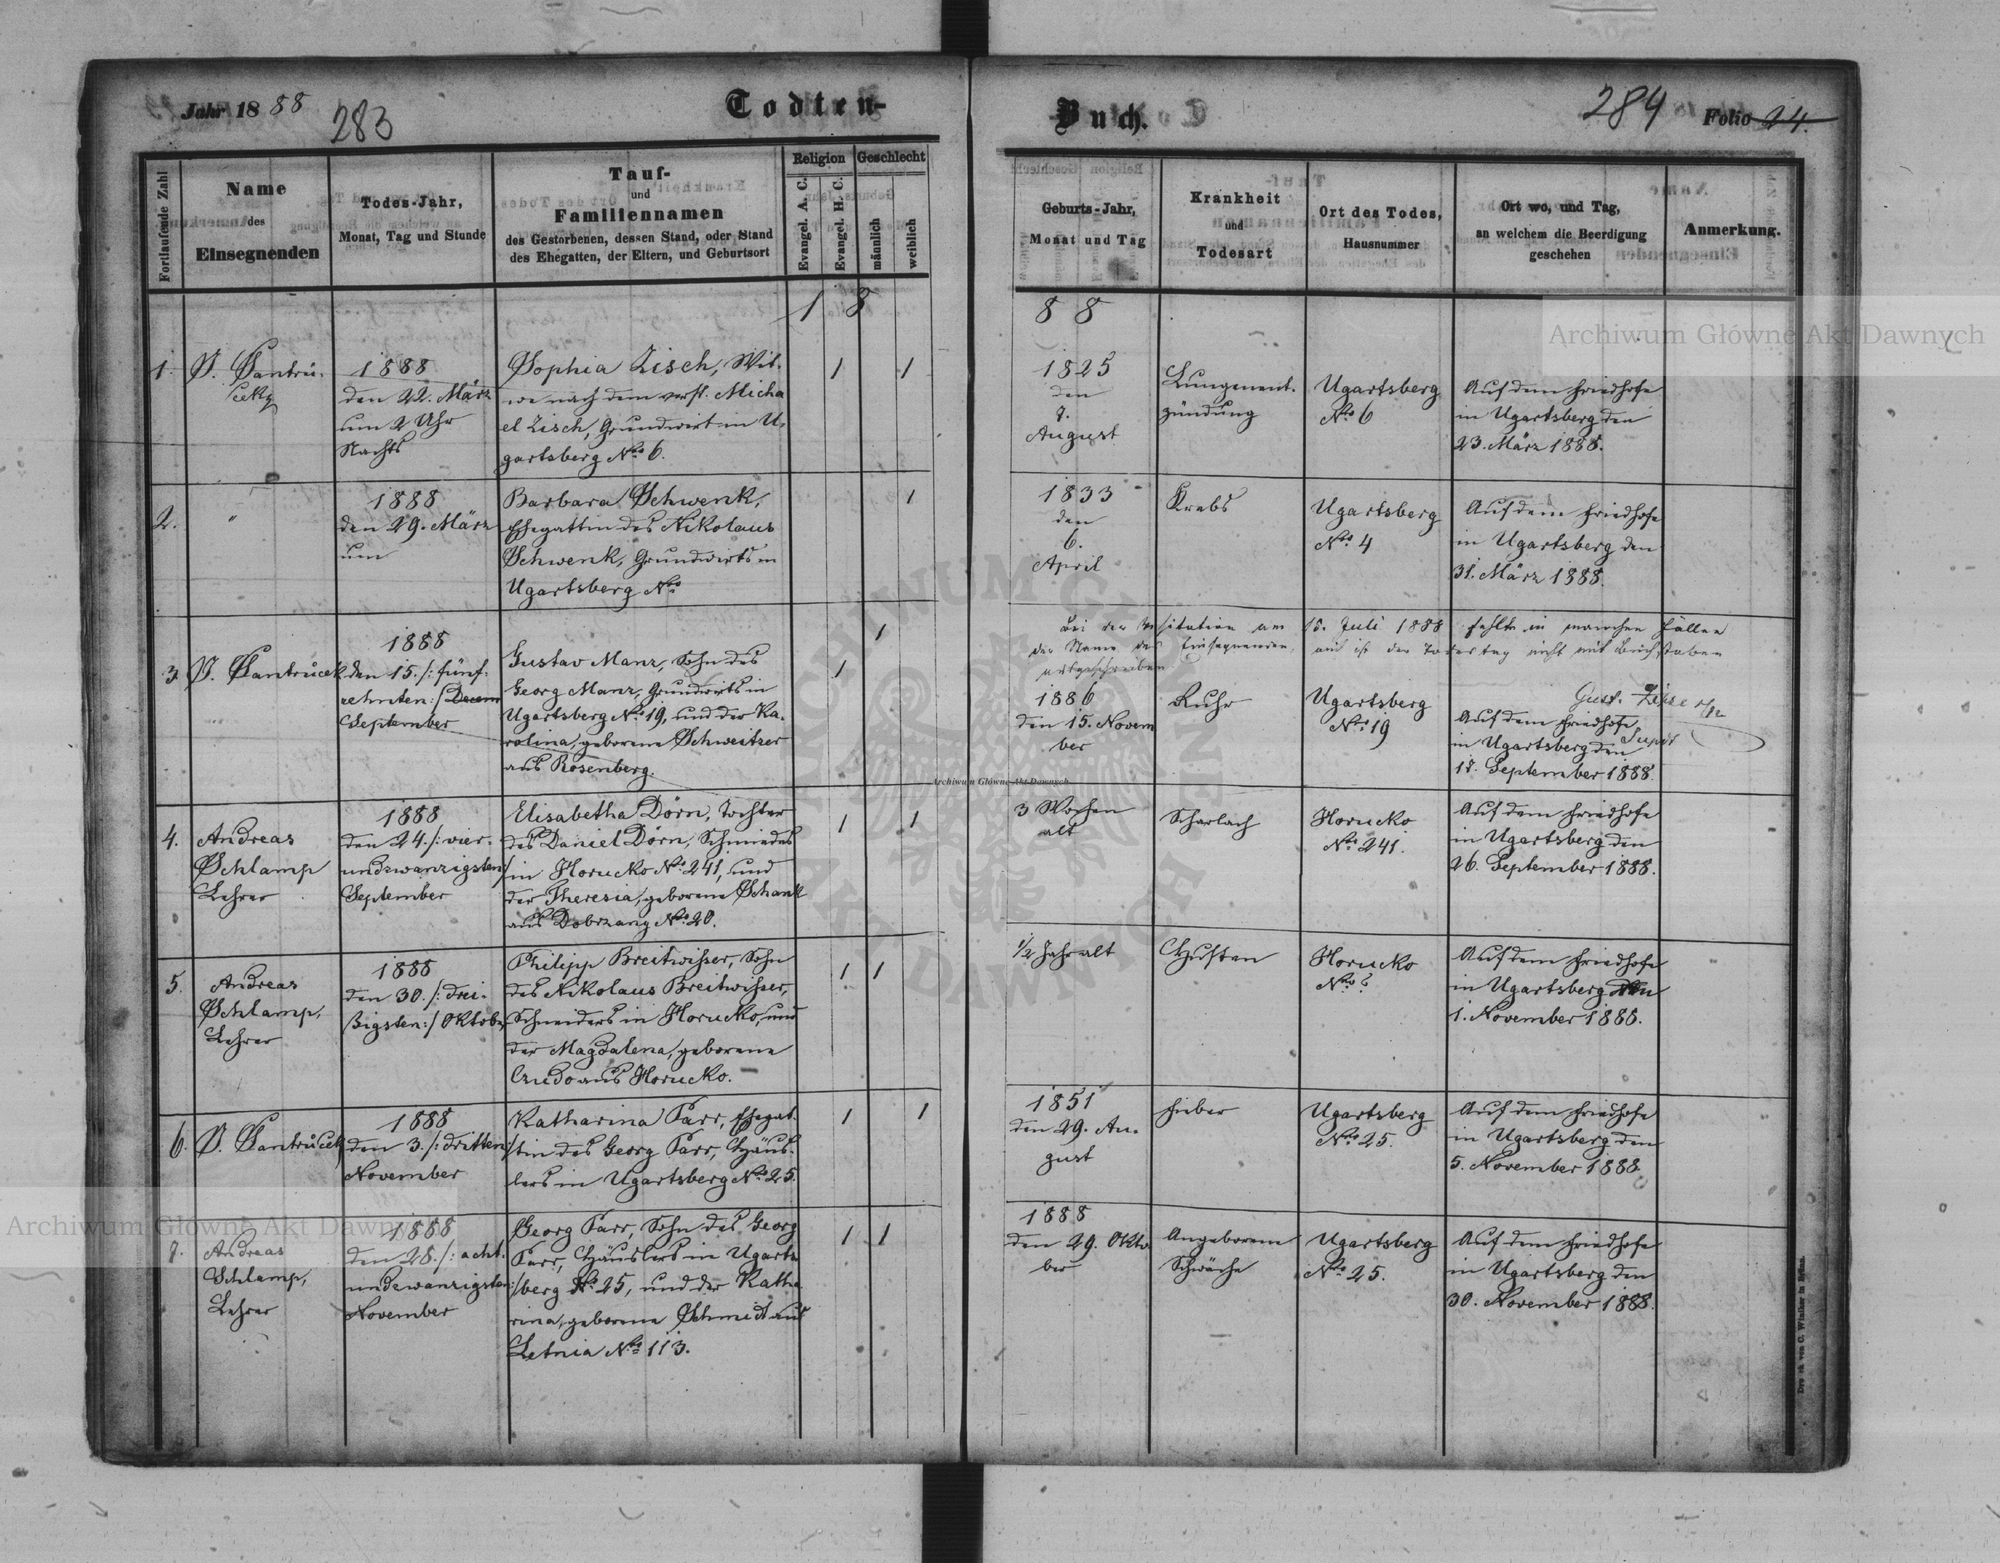 Jahr 1888
283
Todten-
Buch.
284
Folio 24.
Fortlaufende Zahl
Name
des
Einsegnenden
Todes-Jahr,
Monat, Tag und Stunde
Tauf-
und
Familiennamen
des Gestorbenen, dessen Stand, oder Stand
des Ehegatten, der Eltern, und Geburtsort
Religion
Evangel. A. C.
Evangel. H. C.
Geschlecht
männlich
weiblich
Geburts-Jahr,
Monat und Tag
Krankheit
und
Todesart
Ort des Todes,
Hausnummer
Ort wo, und Tag,
an welchem die Beerdigung
geschehen
Anmerkung.
1 8
8 8
1.
1888
den 22. März
um 2 Uhr
Nachts
Sophia Zisch, Wit-
we nach dem verst. Micha
el Zisch, Grundwirt in U-
gartsberg No 6.
1
1
1825
den
7.
August
Lungenent-
zündung
Ugartsberg
No 6
Auf dem Friedhofe
in Ugartsberg den
23. März 1888.
2.
"
1888
den 29. März
um
Barbara Schwenk,
Ehegattin des Nikolaus
Schwenk, Grundwirts in
Ugartsberg No
1
1833
den
6.
April
Krebs
Ugartsberg
No 4
Auf dem Friedhofe
in Ugartsberg den
31. März 1888.
Bei der Visitation am 15. Juli 1888 fehlte in manchen Fällen
der Name des Einsegnenden, auch ist der Todestag nicht mit Buchstaben
ausgeschrieben
Gust.
Supdt
3.
1888
den 15. /: fünf-
zehnten :/ Decem
September
Gustav Manz, Sohn des
Georg Manz, Grundwirts in
Ugartsberg No 19, und der Ka-
rolina, geborene Schweitzer
aus Rosenberg.
1
1
1886
den 15. Novem
ber
Ruhr
Ugartsberg
No 19
Auf dem Friedhofe
in Ugartsberg den
17. September 1888.
4.
Andreas
Schlamp
Lehrer
1888
den 24. /: vier-
undzwanzigsten :/
September
Elisabetha Dörn, Tochter
des Daniel Dörn, Schmiedes
in Horucko No 241, und
der Theresia, geborene Schank
aus Dobrzany No 20.
1
1
3 Wochen
alt
Scharlach
Horucko
No 241.
Auf dem Friedhofe
in Ugartsberg den
26. September 1888.
5.
Andreas
Schlamp,
Lehrer
1888
den 30. /: drei-
ßigsten :/ Oktober
Philipp Breitwisser, Sohn
des Nikolaus Breitwisser,
Schneiders in Horucko, und
der Magdalena, geborene
aus Horucko.
1
1
1/2 Jahr alt
Husten
Horucko
No ?
Auf dem Friedhofe
in Ugartsberg den
1. November 1888.
6.
1888
den 3. /: dritten :/
November
Katharina Parr, Ehegat-
tin des Georg Parr, Häus-
lers in Ugartsberg No 25.
1
1
1851
den 29. Au-
gust
Fieber
Ugartsberg
No 25.
Auf dem Friedhofe
in Ugartsberg den
5. November 1888
7.
Andreas
Schlamp,
Lehrer
1888
den 28. /: acht-
undzwanzigsten :/
November
Georg Parr, Sohn des Georg
Parr, Häuslers in Ugarts
berg No 25, und der Katha
rina, geborene Schmidt aus
Letnia No 113.
1
1
1888
den 29. Okto
ber
Angeborene
Schwäche
Ugartsberg
No 25.
Auf dem Friedhofe
in Ugartsberg den
30. November 1888.
Archiwum Główne Akt Dawnych
Archiwum Główne Akt Dawnych
Archiwum Główne Akt Dawnych
ARCHIWUM GŁÓWNE AKT DAWNYCH